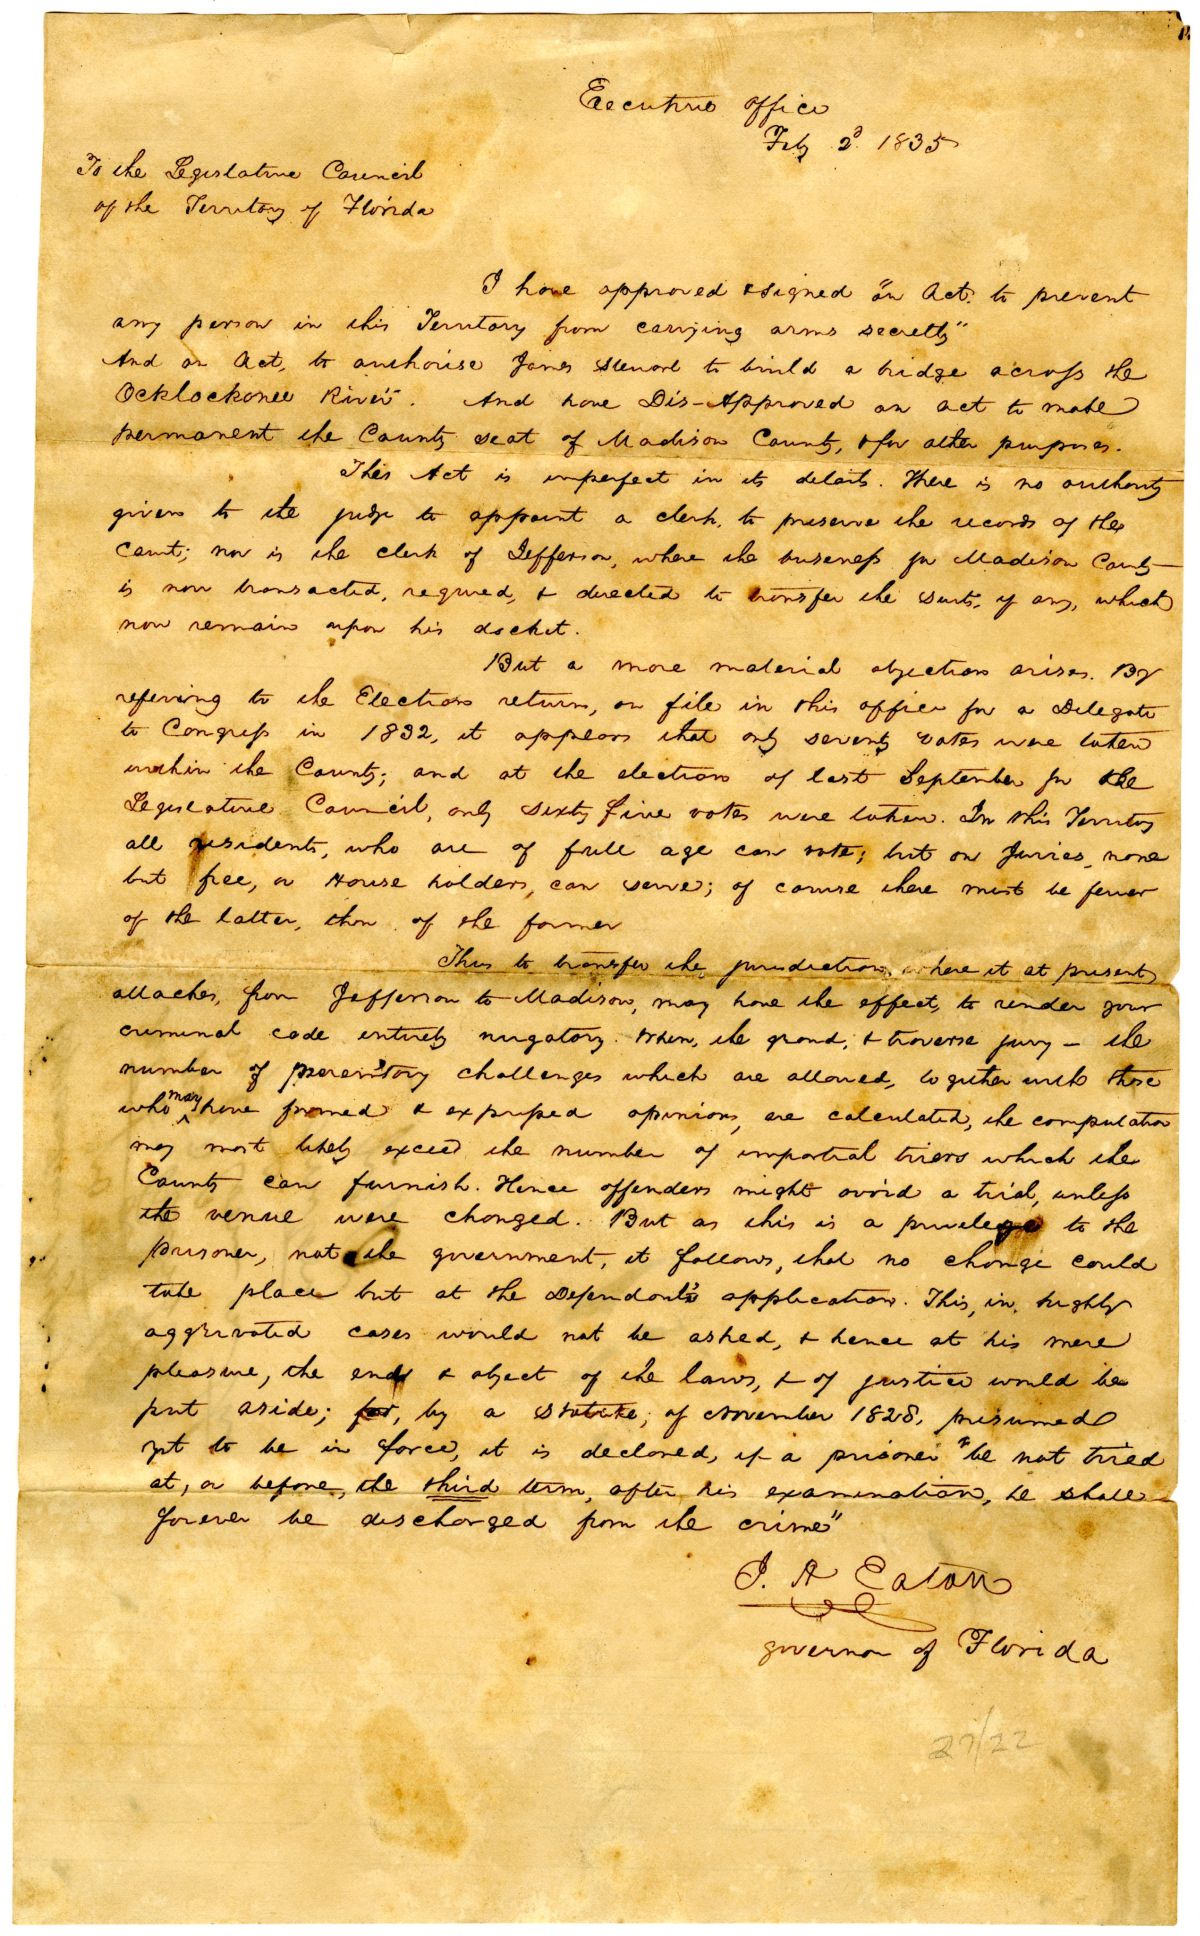 Executive office
Feby 2d. 1835
To the Legislative Council
of the Territory of Florida
I have approved & signed "an Act. to prevent
any person in this Territory from carrying arms secretly"
And an Act, to authorise James Stewart to build a bridge across the
Ocklockonee River. And have Dis-Approved an act to make
permanent the County seat of Madison County, & for other purposes.
This Act is imperfect in its details. There is no authority
given to the judge to appoint a clerk, to preserve the records of the
Court; nor is the clerk of Jefferson, where the business for Madison County
is now transacted, required, & directed to transfer the suits, if any, which
now remain upon his docket.
But a more material objection arises. By
refering to the Election returns, on file in this office for a Delegate
to Congress in 1832, it appears that only seventy votes were taken
within the County; and at the election of last September for the
Legislative Council, only sixty five votes were taken. In this Territory
all residents, who are of full age can vote; but on Juries, none
but free, or House holders, can serve; of course there must be fewer
of the latter, than of the former
Thus to transfer the jurisdiction, where it at present
attaches, from Jefferson to Madison, may have the effect, to render your
criminal code entirely nugatory. When, the grand, & traverse jury - the
number of peremtory challenges which are allowed, together with those
who may have formed & expressed opinions, are calculated, the computation
may most likely exceed the number of impartial triers which the
County can furnish. Hence offenders might avoid a trial, unless
the venue were changed. But as this is a privelege to the
prisoner, not the government, it follows, that no change could
take place but at the Defendant's application. This, in, highly
aggrivated cases would not be asked, & hence at his mere
pleasure, the ends & object of the laws, & of justice would be
put aside; for, by a Statute; of November 1828, presumed
yet to be in force, it is declared, if a prisoner "be not tried
at, or before, the third term, after his examination, he shall
forever be discharged from the crime"
J. H Eaton
governor of Florida
27/22